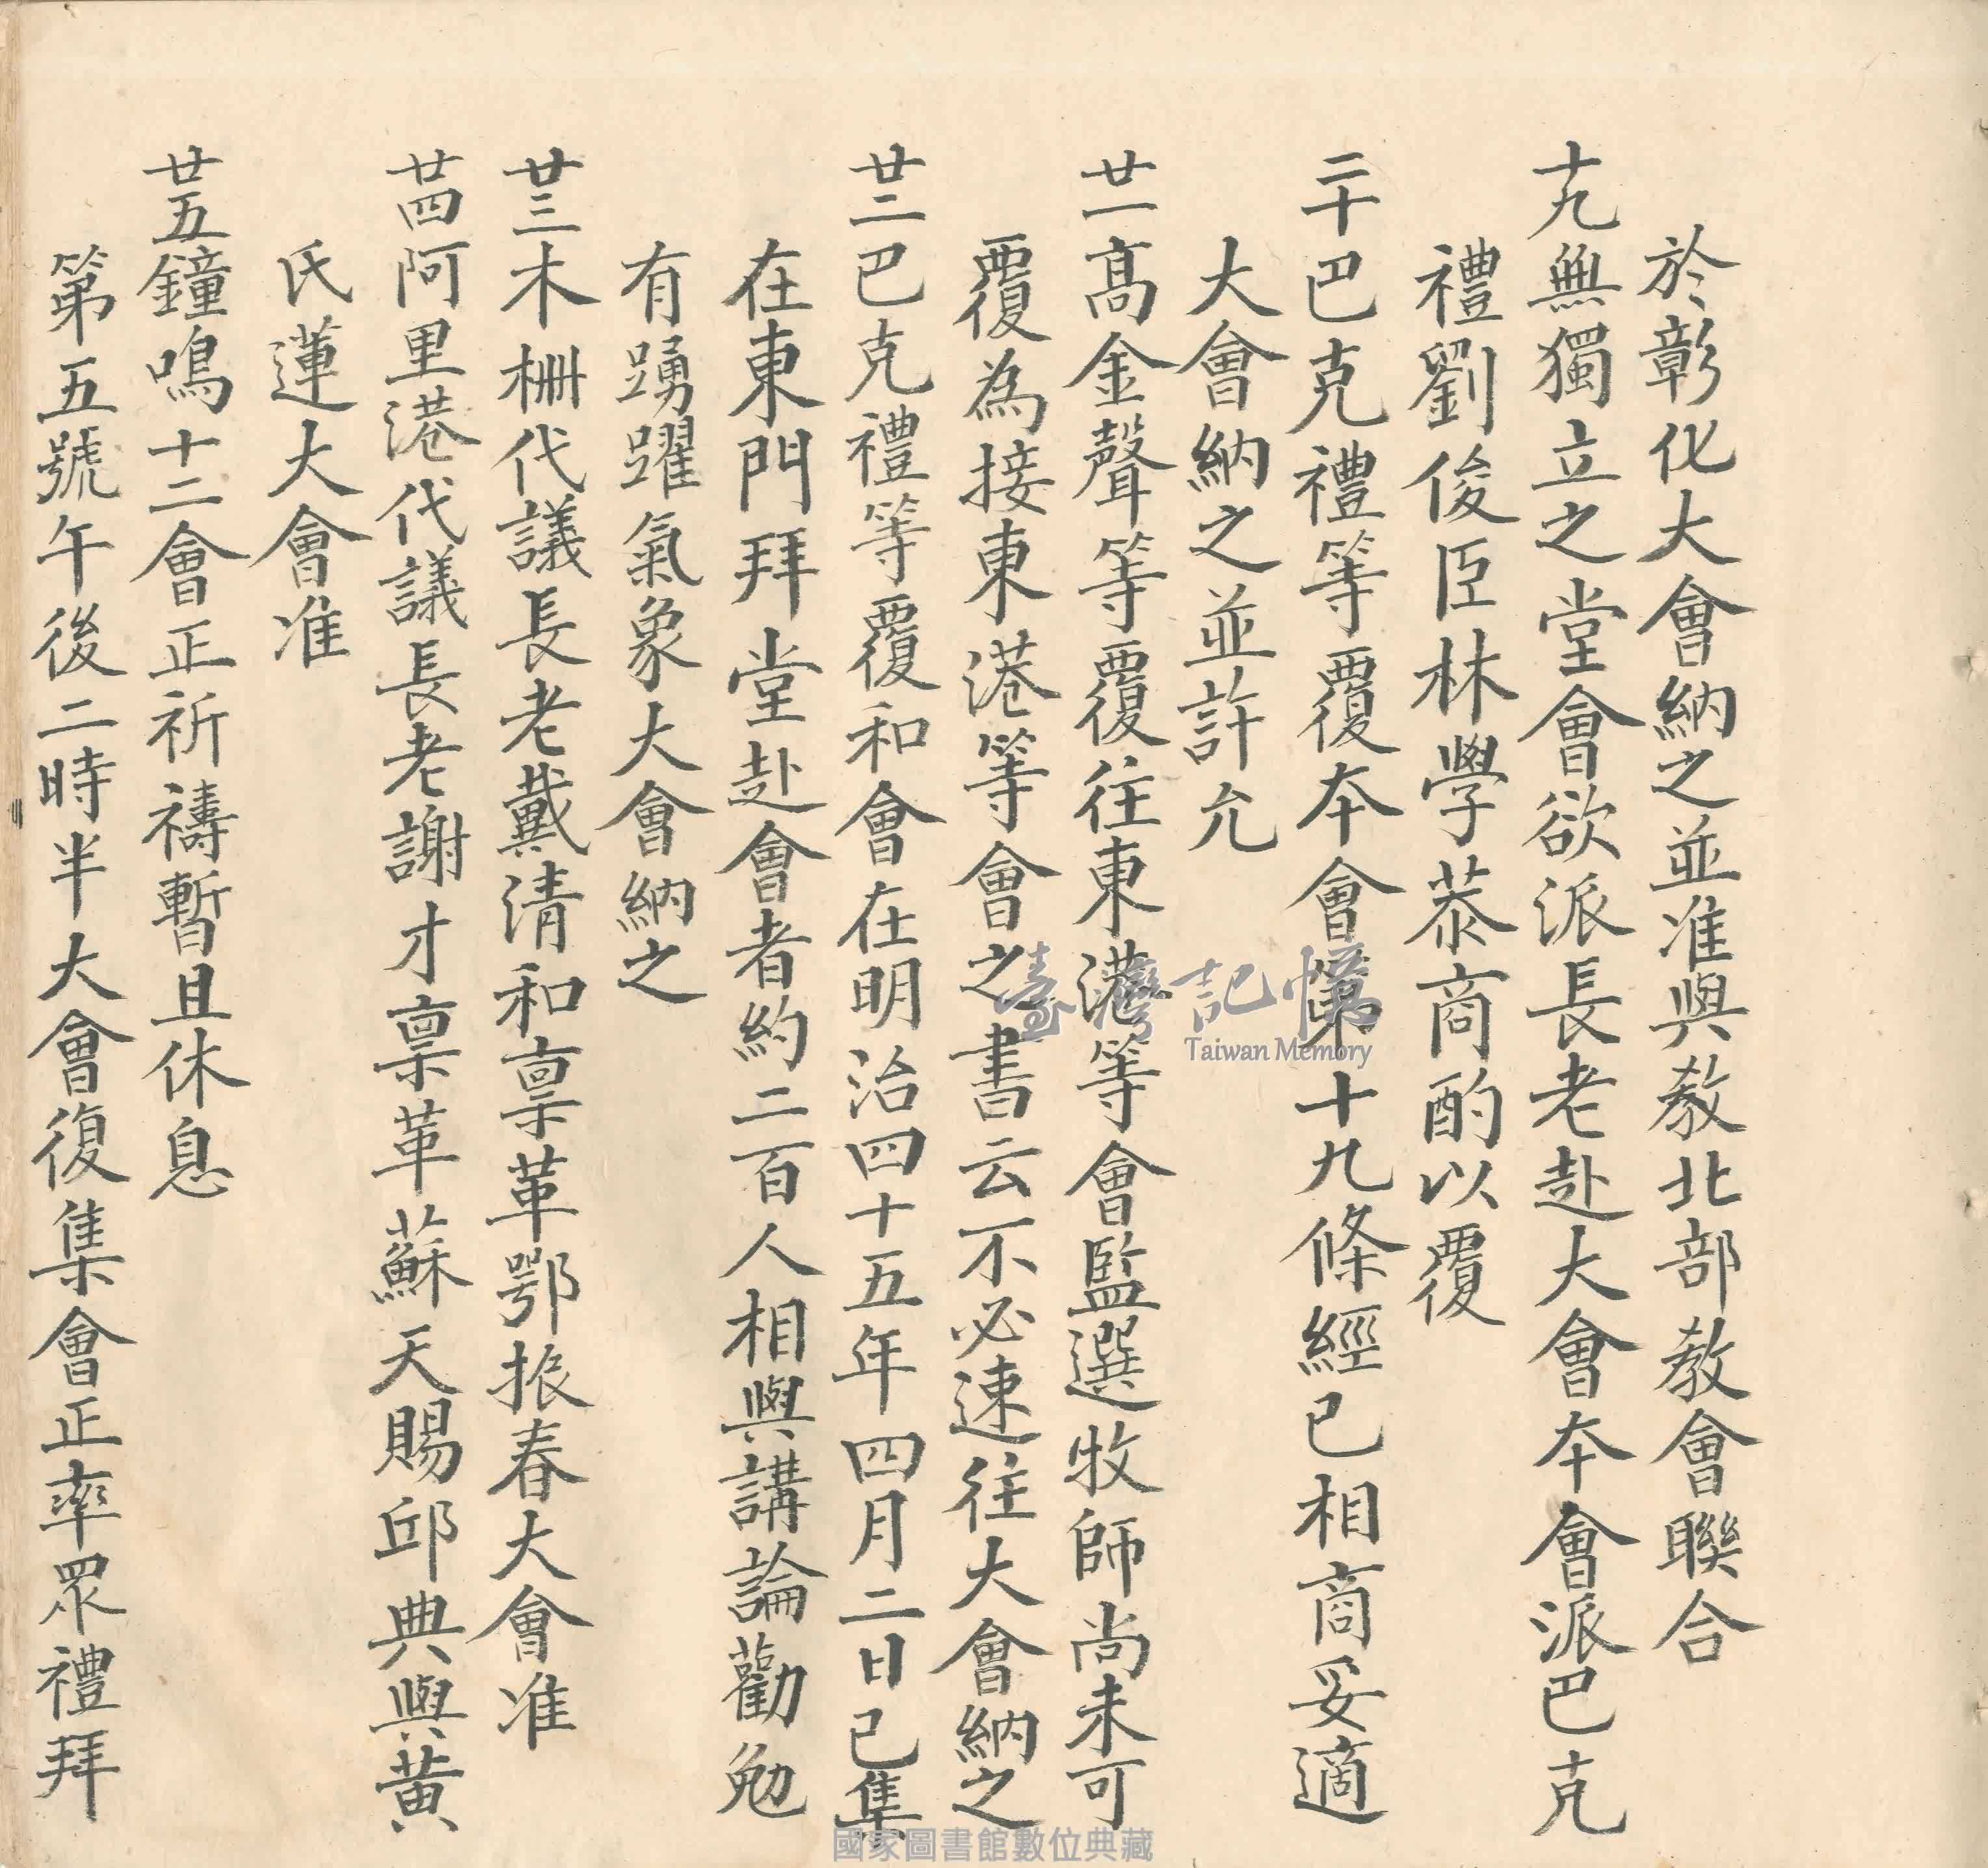 於彰化大會納之並准與教北部教會聯合
十九無獨立之堂會欲派長老赴大會本會派巴克
禮劉俊臣林學恭商酌以覆
二十巴克禮等覆本會第十九條經已相商妥適
大會納之並許允
廿一高金聲等覆往東港等會監選牧師尚未可
覆為接東港等會之書云不必速往大會納之
廿二巴克禮等覆和會在明治四十五年四月二日已集
在東門拜堂赴會者約二百人相與講論勸勉
有踴躍氣象大會納之
廿三木柵代議長老戴清和稟革鄂振春大會准
廿四阿里港代議長老謝才稟革蘇天賜邱典與黃
氏蓮大會准
廿五鐘鳴十二會正祈禱暫且休息
第五號午後二時半大會復集會正率眾禮拜
臺灣記憶
Taiwan Memory
國家圖書館數位典藏